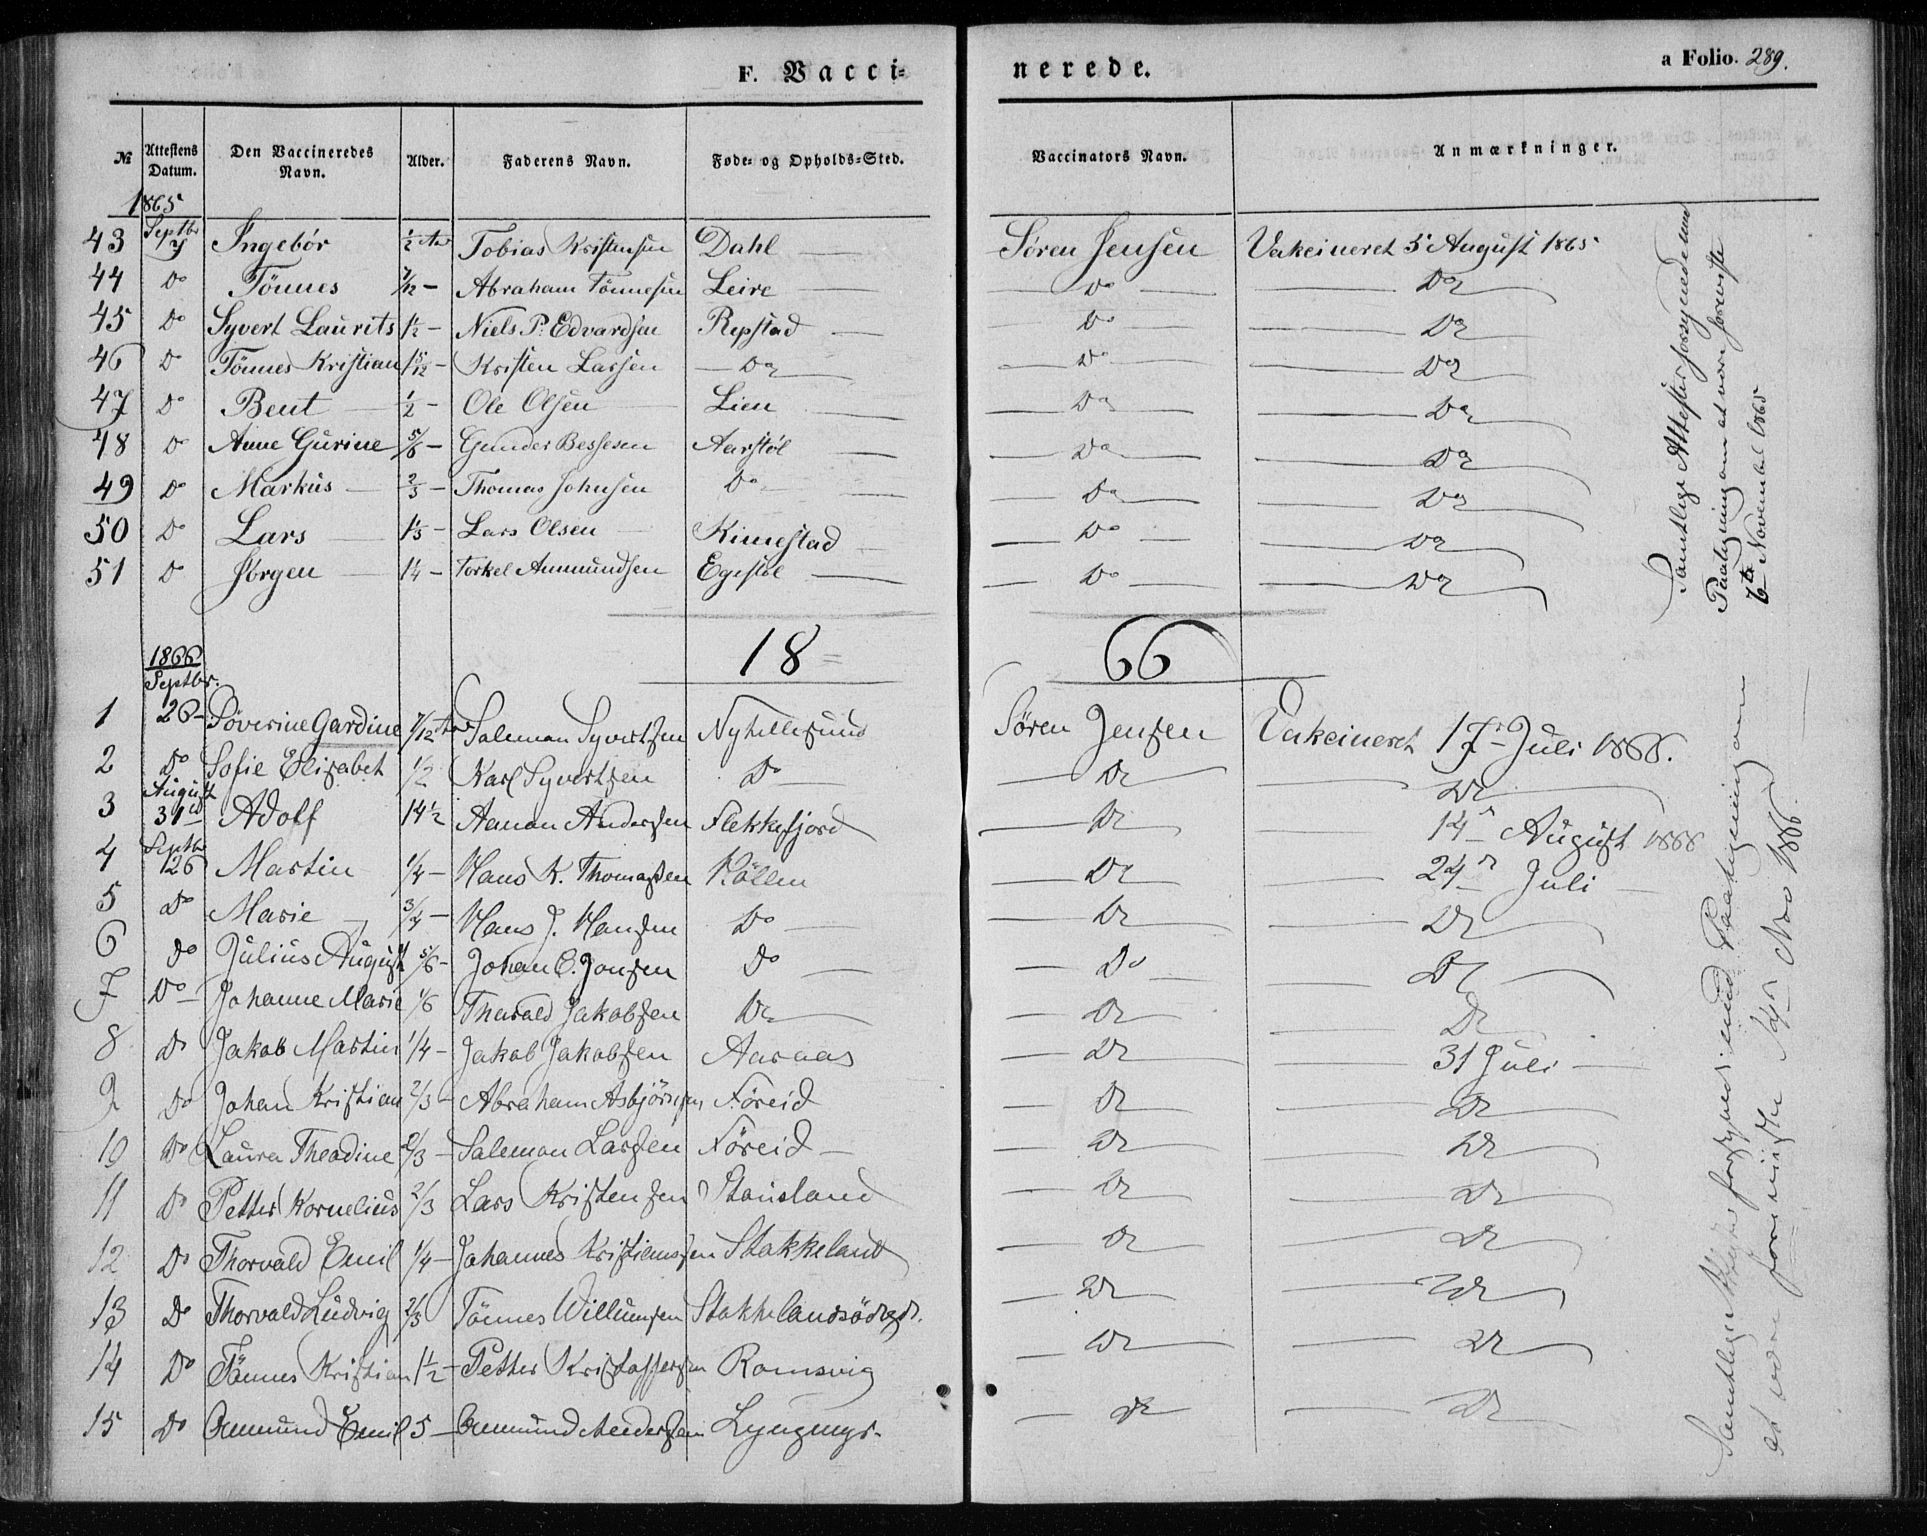 F. Vacci=
nerede.
a Folio. 289.
№ | Attestens Datum. | Den Vaccineredes Navn. | Alder. | Faderens Navn. | Føde= og Opholds=Sted. | Vaccinators Navn. | Anmærkninger.
1865
43 | Septbr 7 | Ingebór | ½ Aar | Tobias Kristensen | Dahl | Søren Jensen | Vakcineret 5 August 1865
44 | Do | Tönnes | 7/12 | Abraham Tönnesen | Leire | Do | Do
45 | Do | Syvert Laurits | 1½ | Niels P. Edvardsen | Repstad | Do | Do
46 | Do | Tönnes Kristian | 1 5/12 | Kristen Larsen | Do | Do | Do
47 | Do | Bent | ½ | Ole Olsen | Lien | Do | Do
48 | Do | Anne Gurine | 5/6 | Gunder Bessesen | Aarstöl | Do | Do
49 | Do | Markus | 2/3 | Thomas Johnsen | Do | Do | Do
50 | Do | Lars | 1⅓ | Lars Olsen | Kimestad | Do | Do
51 | Do | Jörgen | 1¼ | Torkel Ammundsen | Egestöl | Do | Do
Samtlige Attester forsynede med
Paategning om at være foreviste
6te November 1865
18 = 66
1866
Septbr.
1 | 26 | Söverine Gardine | 7/12 Aar | Salemon Syvertsen | Nyhellesund | Søren Jensen | Vakcineret 17 Juli 1866.
2 | Do | Sofie Elisabet | 1/2 | Karl Syvertsen | Do | Do | Do
3 | August 31 | Adolf | 14½ | Aanon Andersen | Flekkefjord | Do | 14 August 1866
4 | Septbr 26 | Martin | 1/4 | Hans K. Thomassen | Kållen | Do | 24 Juli
5 | Do | Marie | 3/4 | Hans J. Hansen | Do | Do | Do
6 | Do | Julius August | 5/6 | Johan C. Jonsen | Do | Do | Do
7 | Do | Johanne Marie | 1/6 | Thorvald Jakobsen | Do | Do | Do
8 | Do | Jakob Martin | 1/4 | Jakob Jakobsen | Aaraas | Do | 31 Juli
9 | Do | Johan Kristian | 2/3 | Abraham Asbjörnsen | Föreid | Do | Do
10 | Do | Laura Theadine | 2/3 | Salemon Larsen | Föreid | Do | Do
11 | Do | Petter Kornelius | 2/3 | Lars Kristensen | Stausland | Do | Do
12 | Do | Thorvald Emil | 1/4 | Johannes Kristiansen | Stakkeland | Do | Do
13 | Do | Thorvald Ludvig | 2/3 | Tönnes Willumsen | Stakkelandsödeg. | Do | Do
14 | Do | Tönnes Kristian | 1½ | Petter Kristoffersen | Romsvig | Do | Do
15 | Do | Ommund Emil | 5 | Ommund | Do | Do
Samtlige forsynet med Paategning om
at være foreviste Nov 1866.